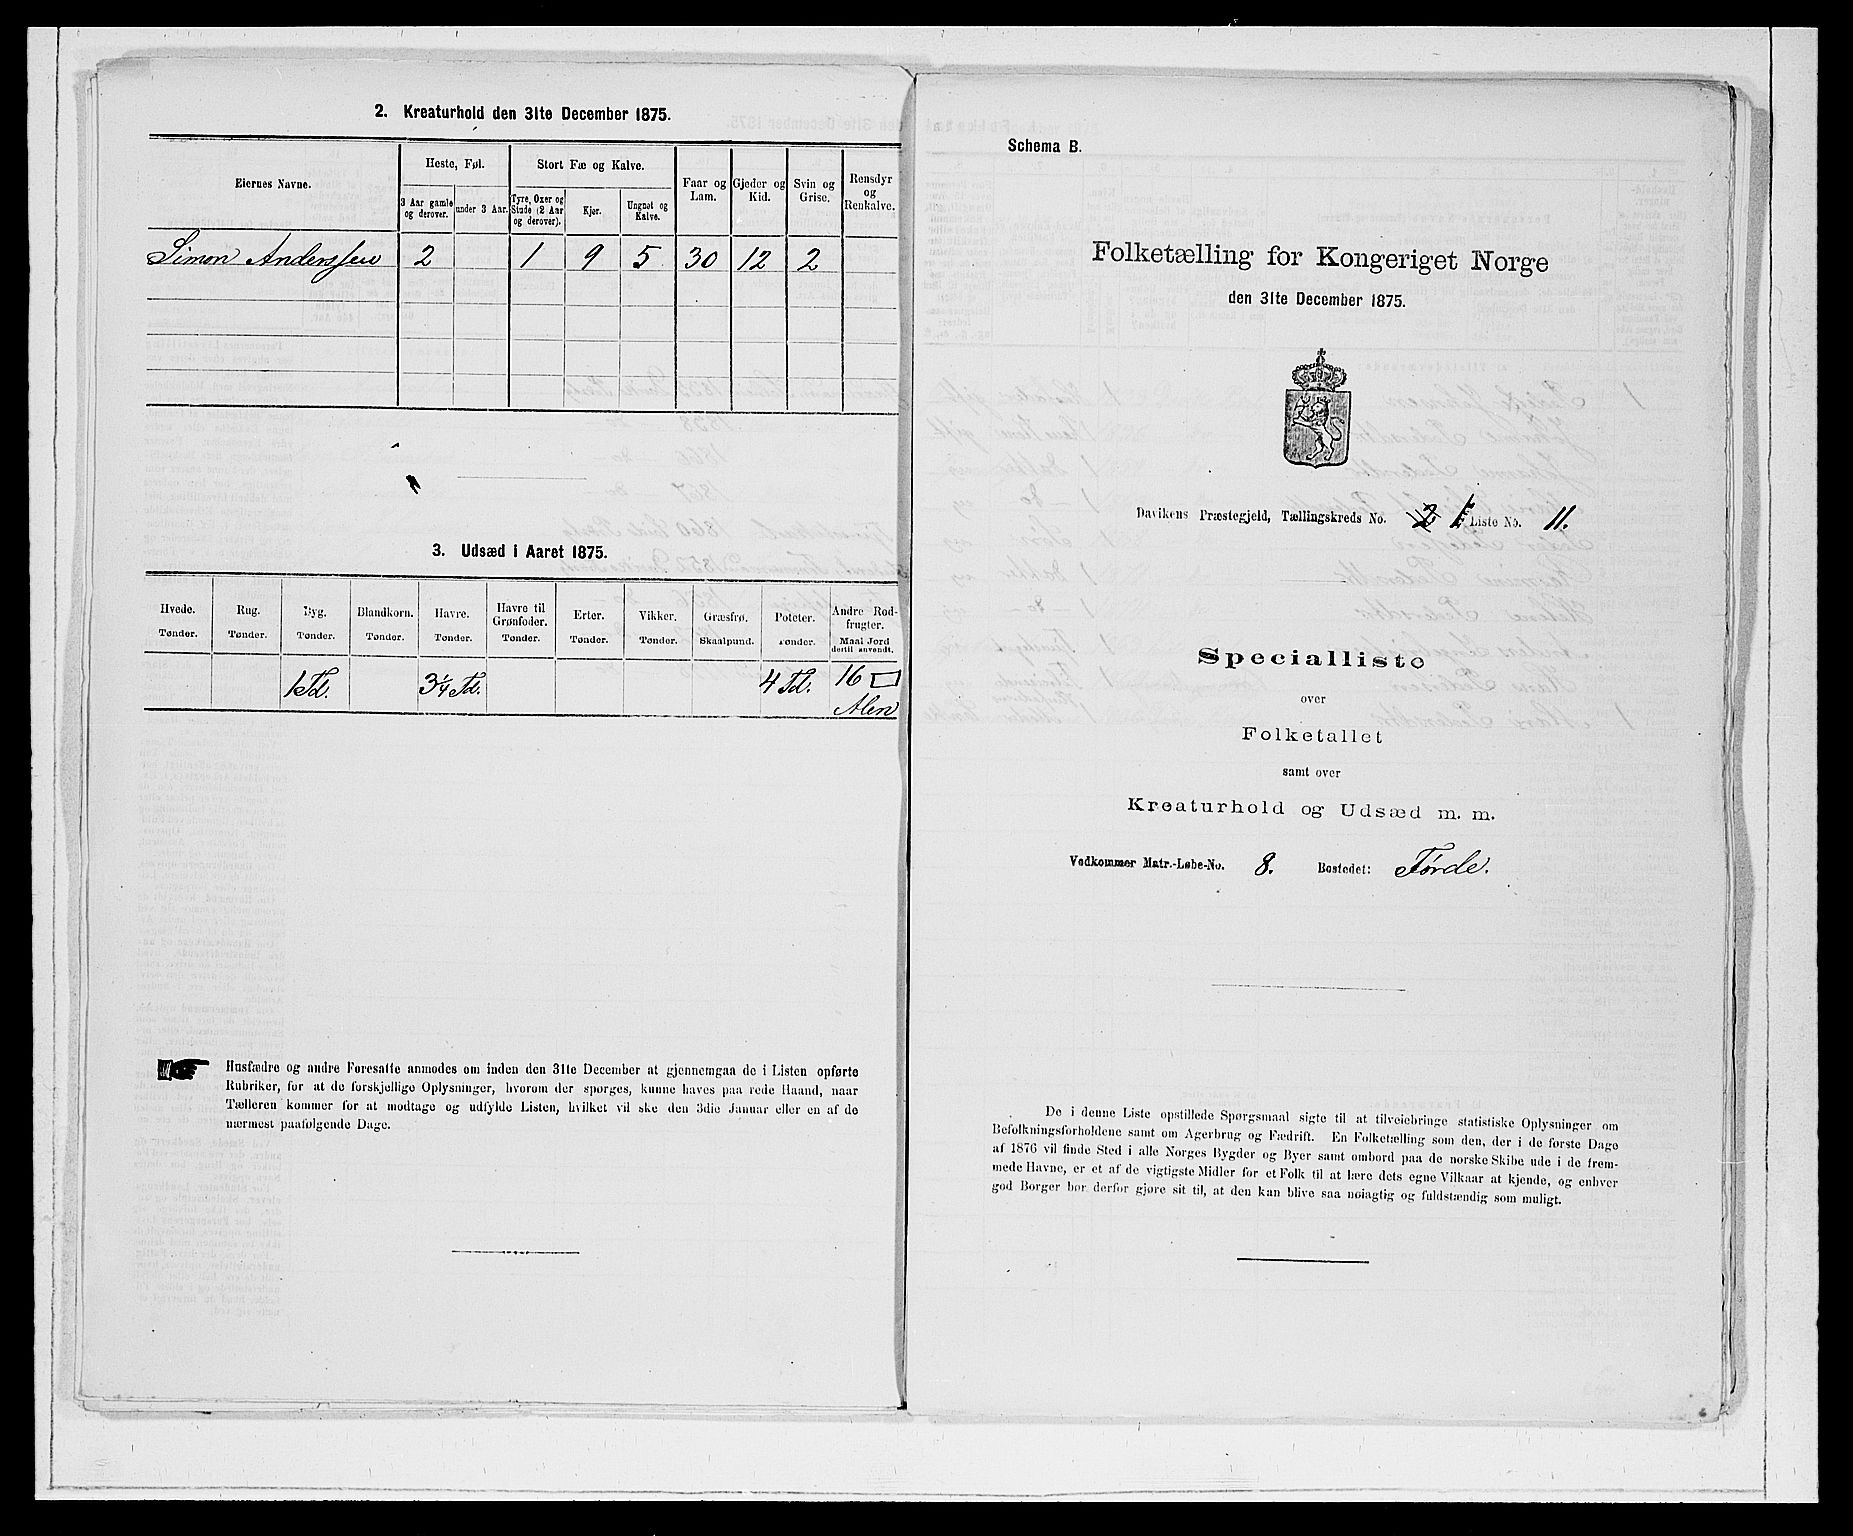 2. Kreaturhold den 31te December 1875.
Eiernes Navne.
Heste, Føl.
Stort Fæ og Kalve.
Faar og Lam.
Gjeder og Kid.
Svin og Grise.
Rensdyr og Renkalve.
3 Aar gamle og derover.
under 3 Aar.
Tyre, Oxer og Stude (2 Aar og derover).
Kjør.
Ungnøt og Kalve.
Simon Anderssen 2 1 9 5 30 12 2
3. Udsæd i Aaret 1875.
Hvede. Rug. Byg. Blandkorn. Havre. Havre til Grønfoder. Erter. Vikker. Græsfrø. Poteter. Andre Rodfrugter.
Tønder. Tønder. Tønder. Tønder. Tønder. Tønder. Tønder. Tønder. Skaalpund. Tønder. Maal Jord dertil anvendt.
1 Td. 3¼ Td. 4 Td. 16 □
Alen
Husfædre og andre Foresatte anmodes om inden den 31te December at gjennemgaa de i Listen opførte
Rubriker, for at de forskjellige Oplysninger, hvorom der spørges, kunne haves paa rede Haand, naar
Tælleren kommer for at modtage og udfylde Listen, hvilket vil ske den 3die Januar eller en af de
nærmest paafølgende Dage.
Schema B.
Folketælling for Kongeriget Norge
den 31te December 1875.
Davikens Præstegjeld, Tællingskreds No. 2 Liste No. 11.
Specialliste
over
Folketallet
samt over
Kreaturhold og Udsæd m. m.
Vedkommer Matr.-Løbe-No. 8. Bostedet: Förde.
De i denne Liste opstillede Spørgsmaal sigte til at tilveiebringe statistiske Oplysninger om
Befolkningsforholdene samt om Agerbrug og Fædrift. En Folketælling som den, der i de første Dage
af 1876 vil finde Sted i alle Norges Bygder og Byer samt ombord paa de norske Skibe ude i de frem-
mede Havne, er et af de vigtigste Midler for et Folk til at lære dets egne Vilkaar at kjende, og enhver
god Borger bør derfor gjøre sit til, at den kan blive saa nøiagtig og fuldstændig som muligt.